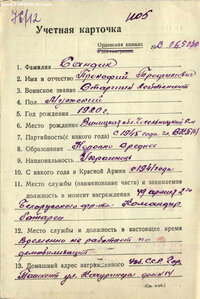 1105
78/12
Учетная карточка
Орденская книжка
№ В 065080
1. Фамилия Сандик
2. Имя и отчество Прокофий Трофимович
3. Воинское звание Старший лейтенант
4. Пол Мужской
5. Год рождения 1920 г.
6. Место рождения Винницкая обл.
7. Партийность (с какого года) с 1945 года чл. ВКП(б)
8. Образование Неполно среднее
9. Национальность Украинец
10. С какого года в Красной Армии с 1941 года
11. Место службы (наименование части) и занимаемая
должность в момент награждения 49 армия 2го
Белорусского фронта Командир
батареи
12. Место службы и должность в настоящее время
Временно не работает по
демобилизации
13. Домашний адрес награжденного